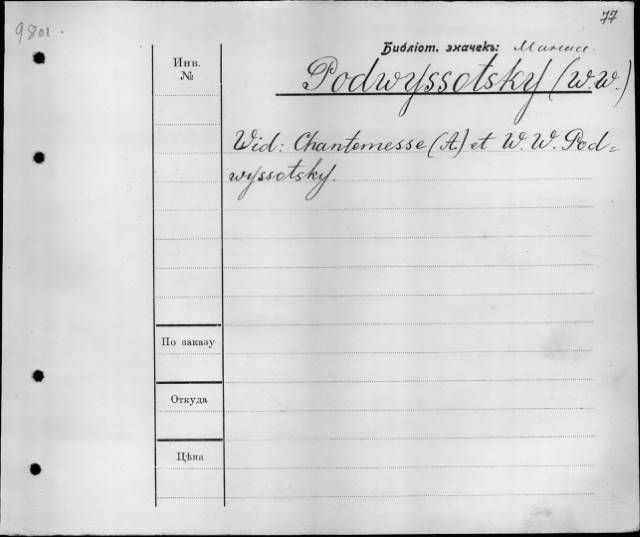 9801.
77
Библіот. значекъ:
Инв.
№
Podwyssotsky (W.W.)
Wid: Chantemesse (A.) et W. W. Pod=
wyssotsky.
По заказу
Откуда
Цѣна